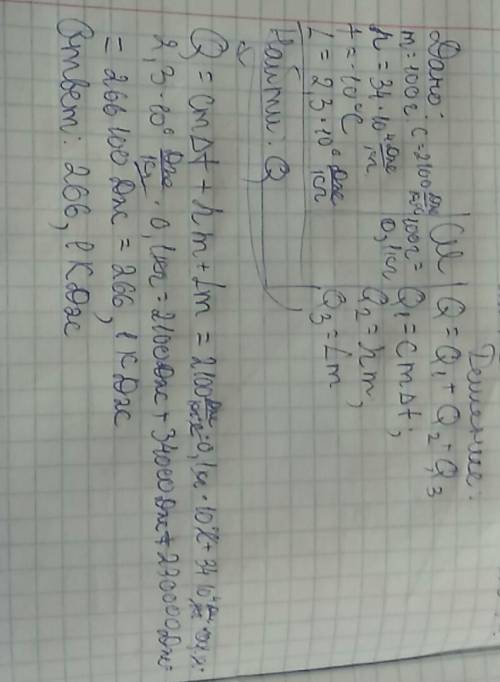 Дано:
m = 100г
c = 2100 Дж/кг°C
λ = 34·10⁴ Дж/кг
t = -10°C
L = 2,3·10⁶ Дж/кг
Найти: Q
СИ
100г =
0,1кг
Решение:
Q = Q₁ + Q₂ + Q₃
Q₁ = cmΔt;
Q₂ = λm;
Q₃ = Lm
Q = cmΔt + λm + Lm = 2100 Дж/кг°C · 0,1кг · 10°C + 34·10⁴ Дж/кг · 0,1кг +
2,3·10⁶ Дж/кг · 0,1кг = 2100Дж + 34000Дж + 230000Дж =
= 266100 Дж = 266,1 КДж
Ответ: 266,1 КДж